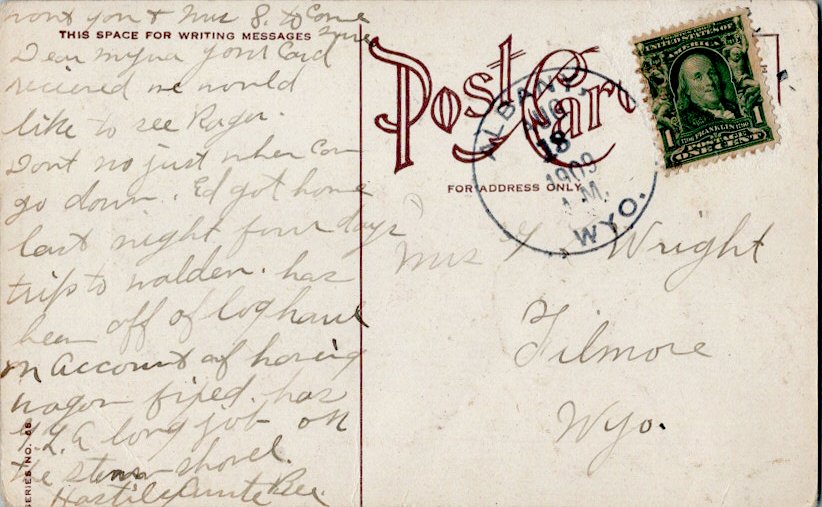 want you & Mrs S. to Come
THIS SPACE FOR WRITING MESSAGES
Dear your Card
recieved we would
like to see Roger.
Dont no just when Can
go down. Ed got home
last night four days
trip to walden. has
been off of log haul
on account of having
wagon fixed. has
a long job on
the steam shovel.
Hastily Aunte Bee
SERIES NO.
Post Card
FOR ADDRESS ONLY
ALBANY,
AUG
18
1909
A.M.
WYO.
UNITED STATES OF
AMERICA
1 1
1706 FRANKLIN 1790
POSTAGE
ONE CENT
Mrs Wright
Filmore
Wyo.